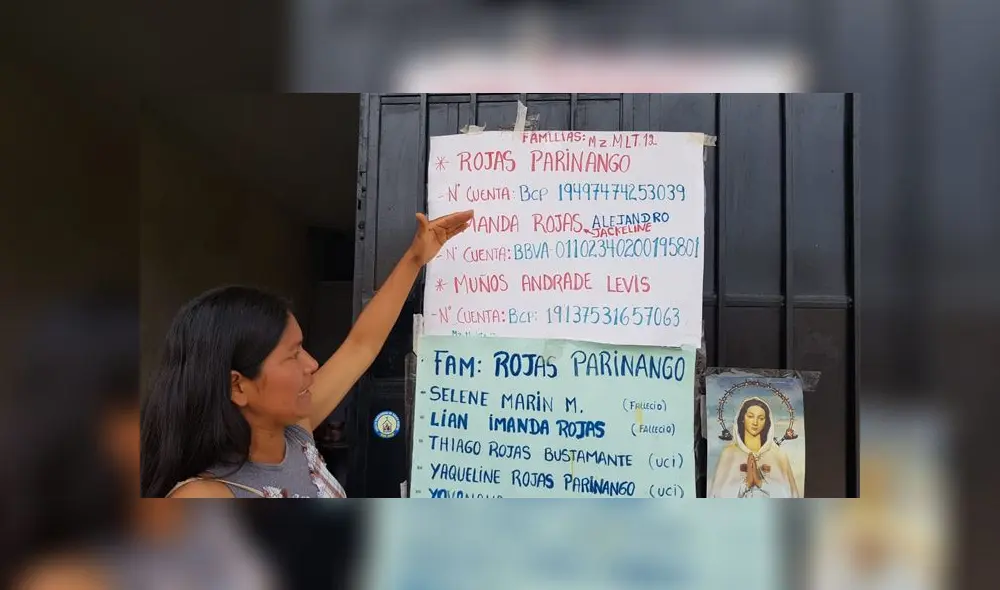 FAMILIAS: Mz. M LT. 12
* ROJAS PARINANGO
- N° CUENTA: BCP 19497474253039
MANDA ROJAS ALEJANDRO
JACKELINE
N° CUENTA: BBVA 01102340200195801
* MUÑOS ANDRADE LEVIS
- N° CUENTA: BCP: 19137531657063
FAM: ROJAS PARINANGO
- SELENE MARIN M. (FALLECIO)
- LIAN IMANDA ROJAS (FALLECIO)
- THIAGO ROJAS BUSTAMANTE (UCI)
- YAQUELINE ROJAS PARINANGO (UCI)